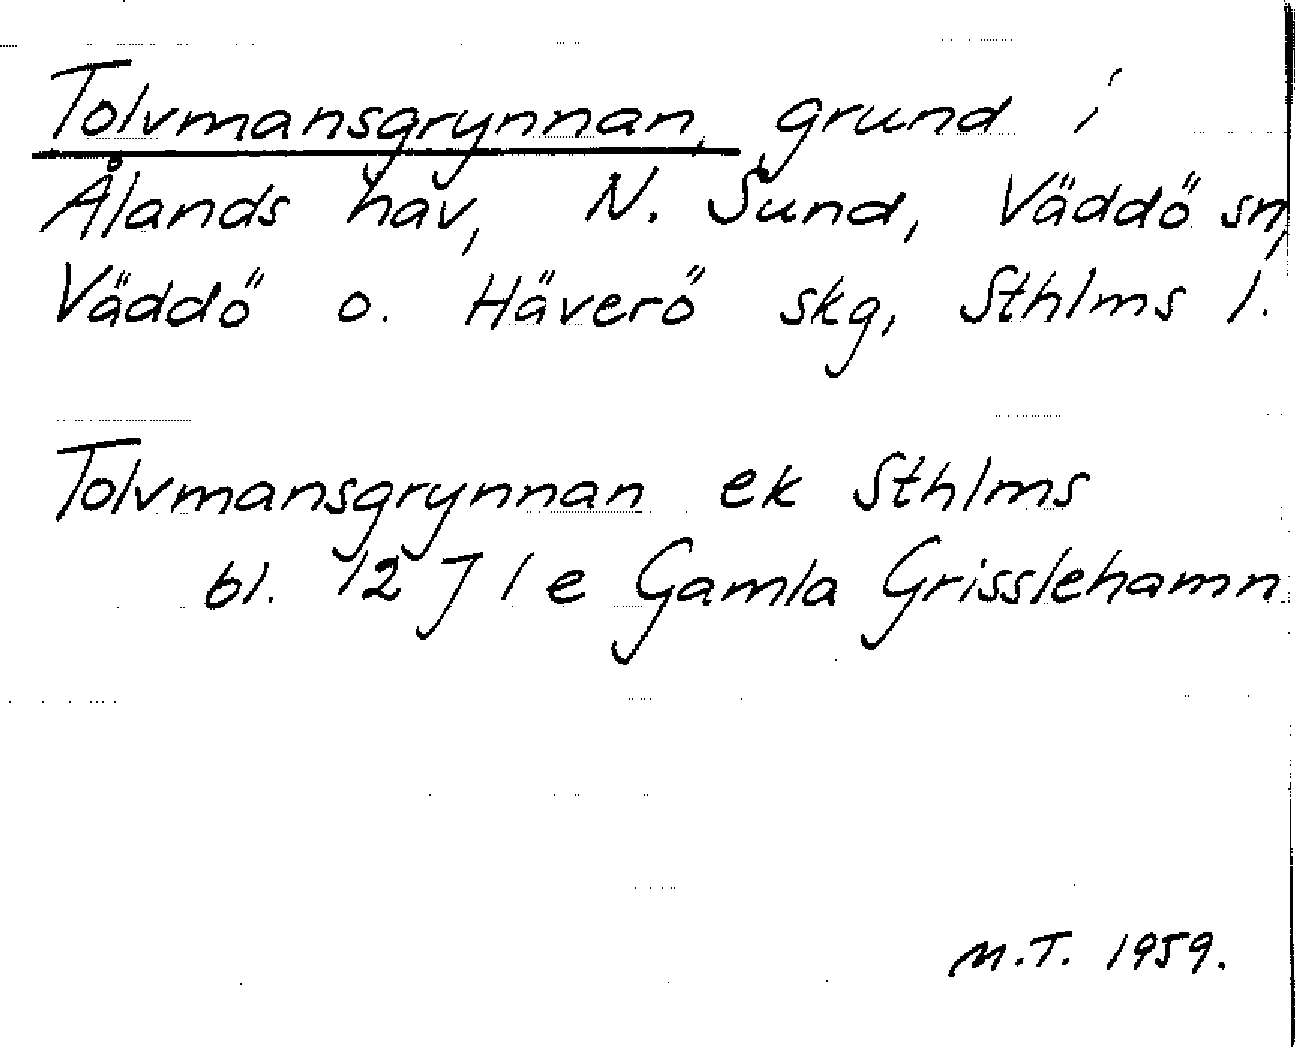 Tolvmansgrynnan, grund i
Ålands hav, N. Sund, Väddö sn,
Väddö o. Häverö skg, Sthlms l.
Tolvmansgrynnan ek Sthlms
bl. 12 J 1 e Gamla Grisslehamn
M.T. 1959.